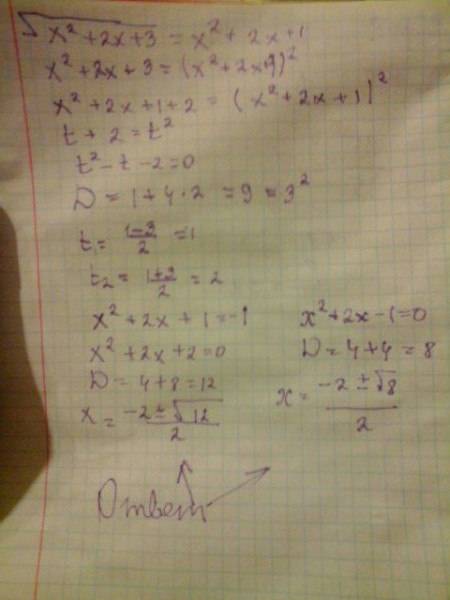 √x² + 2x + 3 = x² + 2x + 1
x² + 2x + 3 = (x² + 2x + 1)²
x² + 2x + 1 + 2 = (x² + 2x + 1)²
t + 2 = t²
t² - t - 2 = 0
D = 1 + 4·2 = 9 = 3²
t₁ = (1-3)/2 = 1
t₂ = (1+3)/2 = 2
x² + 2x + 1 = -1
x² + 2x + 2 = 0
D = 4 + 8 = 12
x = (-2 ± √12)/2
x² + 2x - 1 = 0
D = 4 + 4 = 8
x = (-2 ± √8)/2
Ответ